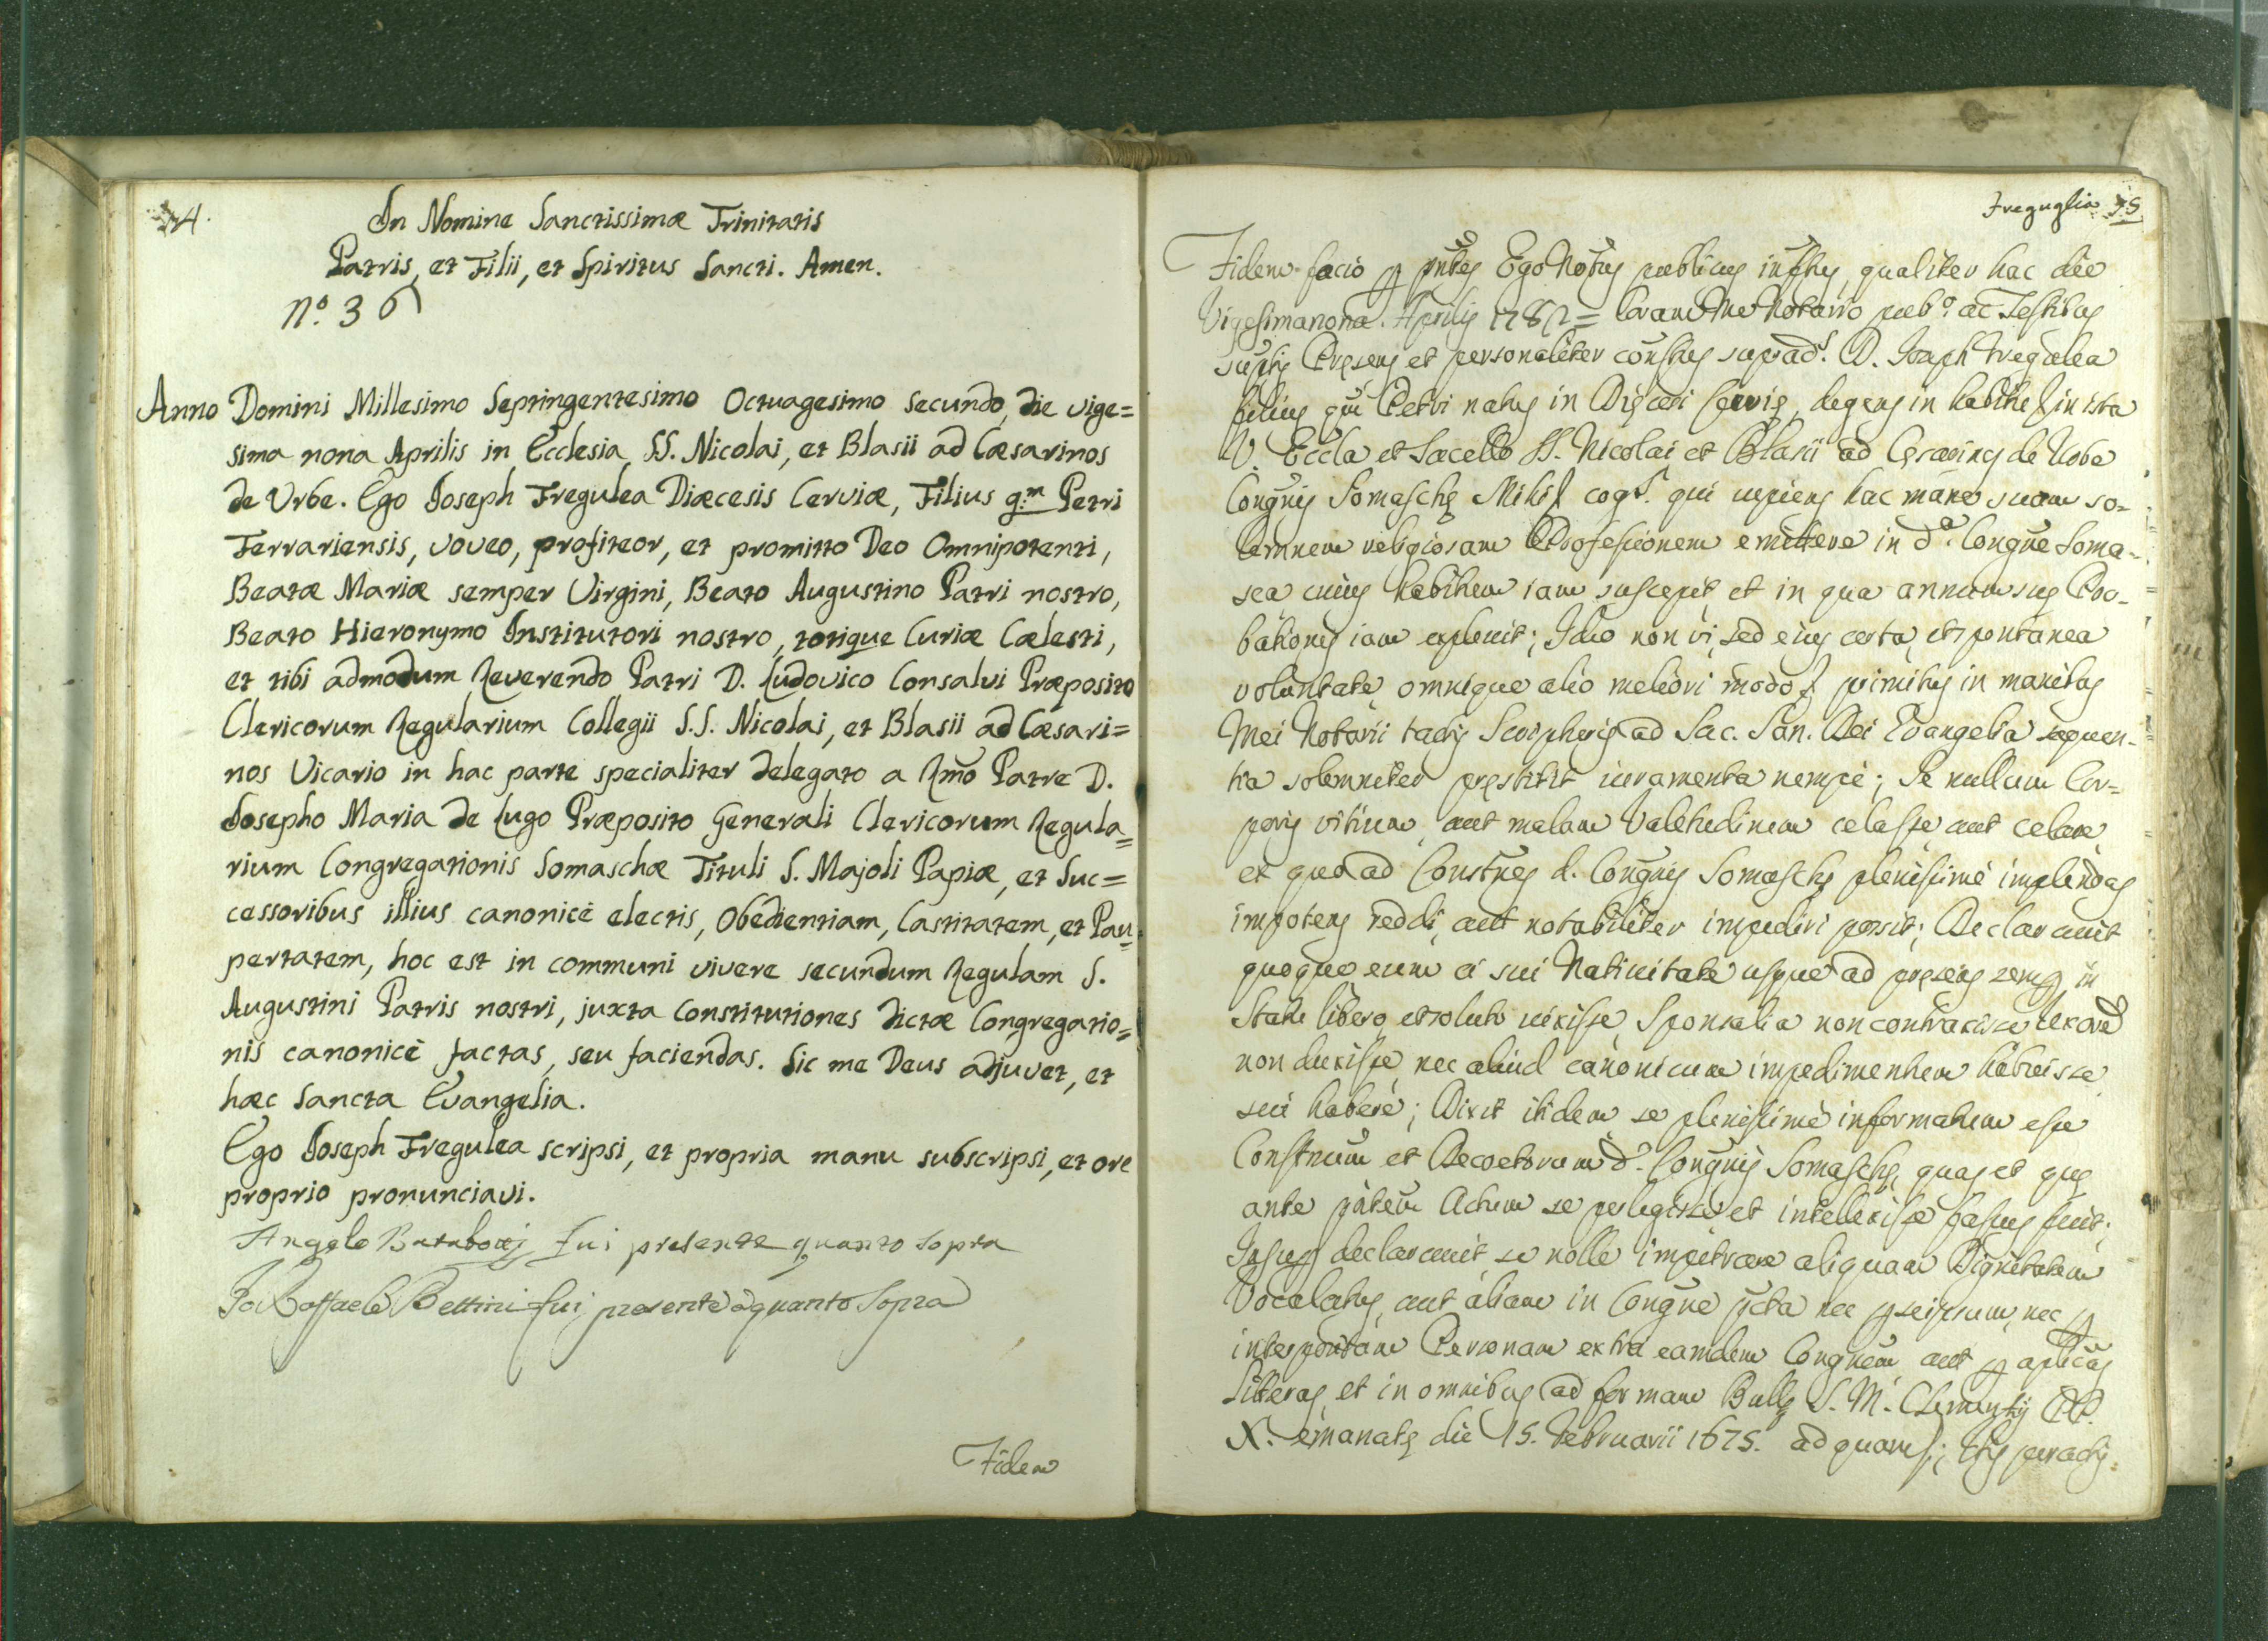 74.
In Nomine Sanctissimæ Trinitatis
Patris, et Filii, et Spiritus Sancti. Amen.
N.º 36
Anno Domini Millesimo Septingentesimo Octuagesimo Secundo, die vige=
sima nona Aprilis in Ecclesia SS. Nicolai, et Blasii ad Cæsarinos
de Urbe. Ego Joseph Fregulea Diæcesis Cerviæ, Filius q.m Petri
Ferrariensis, voveo, profiteor, et promitto Deo Omnipotenti,
Beatæ Mariæ semper Virgini, Beato Augustino Patri nostro,
Beato Hieronymo Institutori nostro, totique Curiæ Cælesti,
et tibi admodum Reverendo Patri D. Ludovico Consalvi Præposito
Clericorum Regularium Collegii S.S. Nicolai, et Blasii ad Cæsari=
nos Vicario in hac parte specialiter delegato a Rmo Patre D.
Josepho Maria de Lugo Præposito Generali Clericorum Regula=
rium Congregationis Somaschæ Tituli S. Majoli Papiæ, et Suc=
cessoribus illius canonicè electis, Obedientiam, Castitatem, et Pau=
pertatem, hoc est in communi vivere secundum Regulam S.
Augustini Patris nostri, juxta Constitutiones dictæ Congregatio=
nis canonicè factas, seu faciendas. Sic me Deus adjuvet, et
hæc Sancta Evangelia.
Ego Joseph Fregulea scripsi, et propria manu subscripsi, et ore
proprio pronunciavi.
Angelo fui presente quanto sopra
Io Raffaele Bettini fui presente à quanto Sopra
Fidem
Freguglia 75
Fidem facio Ego publicus qualiter hac die
Vigesimanona Aprilis 1782 = Coram me Notario pub.º ac Testibus
et personaliter D. Joseph Fregulea
filius Petri natus in Cervię, degens in ista
V. Eccla et Sacello SS. Nicolai et Blasii ad de Urbe
Somaschę qui cupiens hac mane suam so-
lemnem religiosam Professionem emittere in d.ª Congne Soma-
sca cuius habitum iam suscepit et in qua annum suę Pro-
bationis iam explevit; Ideo non vi, sed eius certa, et spontanea
voluntate omnique alio meliori modo primitus in manibus
Mei Notarii tactis Scripturis ad Sac. San. Dei Evangelia sequen-
tia solemniter pręstitit iuramenta nempè; Se nullum Cor=
poris vitium, aut malam Valetudinem celasse aut celare
ex quo ad d. Congnis Somaschę plenissimè implendas
impotens reddi, aut notabiliter impediri possit; Declaravit
quoque eum à sui Nativitate usque ad pręsens in
Statu libero, et soluto vixisse Sponsalia non contraxisse Uxorem
non duxisse, nec aliud canonicum impedimentum habuisse
seu haberè; Dixit itidem se plenissimè informatum esse
et Decretorum d.ę Congnis Somaschę, quas et quę
ante Actum se perlegisse et intellexisse fassus fuit.
declaravit se nolle impetrare aliquam Dignitatem
Vocalatus, aut aliam in Congne nec seipsum, nec
interpositam Personam extra eamdem Congnem aut
Literas, et in omnibus ad formam Bullę S. M. Clementis PP.
X. emanatę die 15. Februarii 1675. ad quam